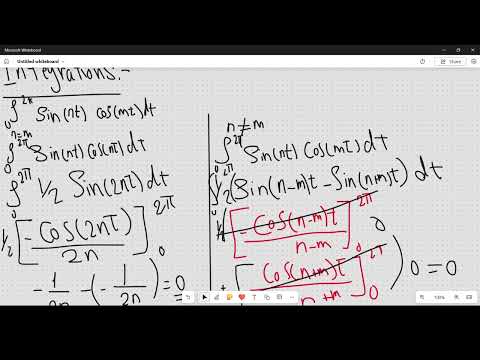 Microsoft Whiteboard
Untitled whiteboard
Share
Integrations:-
∫₀^2π Sin(nt) cos(mt)dt
n=m
∫₀^2π Sin(nt) cos(nt) dt
∫₀^2π 1/2 Sin(2nt) dt
1/2 [-Cos(2nt)/2n]₀^2π
-1/2n -(-1/2n) = 0
n≠m
∫₀^2π Sin(nt) Cos(mt) dt
∫₀^2π 1/2 (Sin(n-m)t - Sin(n+m)t) dt
[-Cos(n-m)t / n-m]₀^2π 0
+ [Cos(n+m)t / n+m]₀^2π ) 0 = 0